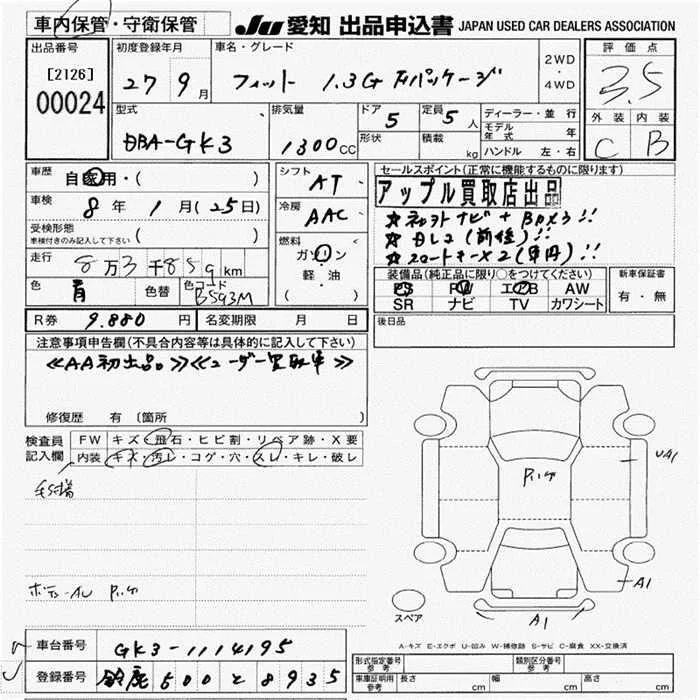 車内保管・守衛保管
JU 愛知 出品申込書 JAPAN USED CAR DEALERS ASSOCIATION
出品番号
[2126]
00024
初度登録年月
27 9月
車名・グレード
フィット 1.3G Fパッケージ
2WD
・
4WD
評価点
3.5
外装 内装
C B
型式
DBA-GK3
排気量
1300cc
ドア
5
定員
5人
形状
積載
kg
ディーラー・並行
モデル年式 年
ハンドル 左・右
車歴
自家用・( )
車検
8年 1月(25日)
受検形態
車検付きのみ記入して下さい ( )
走行
8万3千859km
色
青
色替
色コード
B593M
シフト
AT
冷房
AAC
燃料
ガソリン
軽・油
( )
セールスポイント(正常に機能するものに限ります)
アップル買取店出品
装備品(純正品に限り○をつけてください)
PS PW エアB AW
SR ナビ TV カワシート
新車保証書
有・無
R券 9.880円
名変期限 月 日
後日品
注意事項申告欄(不具合内容等は具体的に記入して下さい)
≪AA初出品≫≪ユーザー買取車≫
修復歴 有 〔箇所 〕
検査員
記入欄
FW キズ・飛石・ヒビ割・リペア跡・X要
内装 キズ・汚レ・コゲ・穴・スレ・キレ・破レ
Pﾚﾝｹ
UA1
A1
A1
スペア
A-キズ E-エクボ U-凹み W-補修跡 S-サビ C-腐食 XX-交換済
車台番号 GK3-1114195
登録番号 鈴鹿 500 と 8935
形式指定番号
参考
類別区分番号
参考
車庫証明用
参考
長さ cm
幅 cm
高さ cm